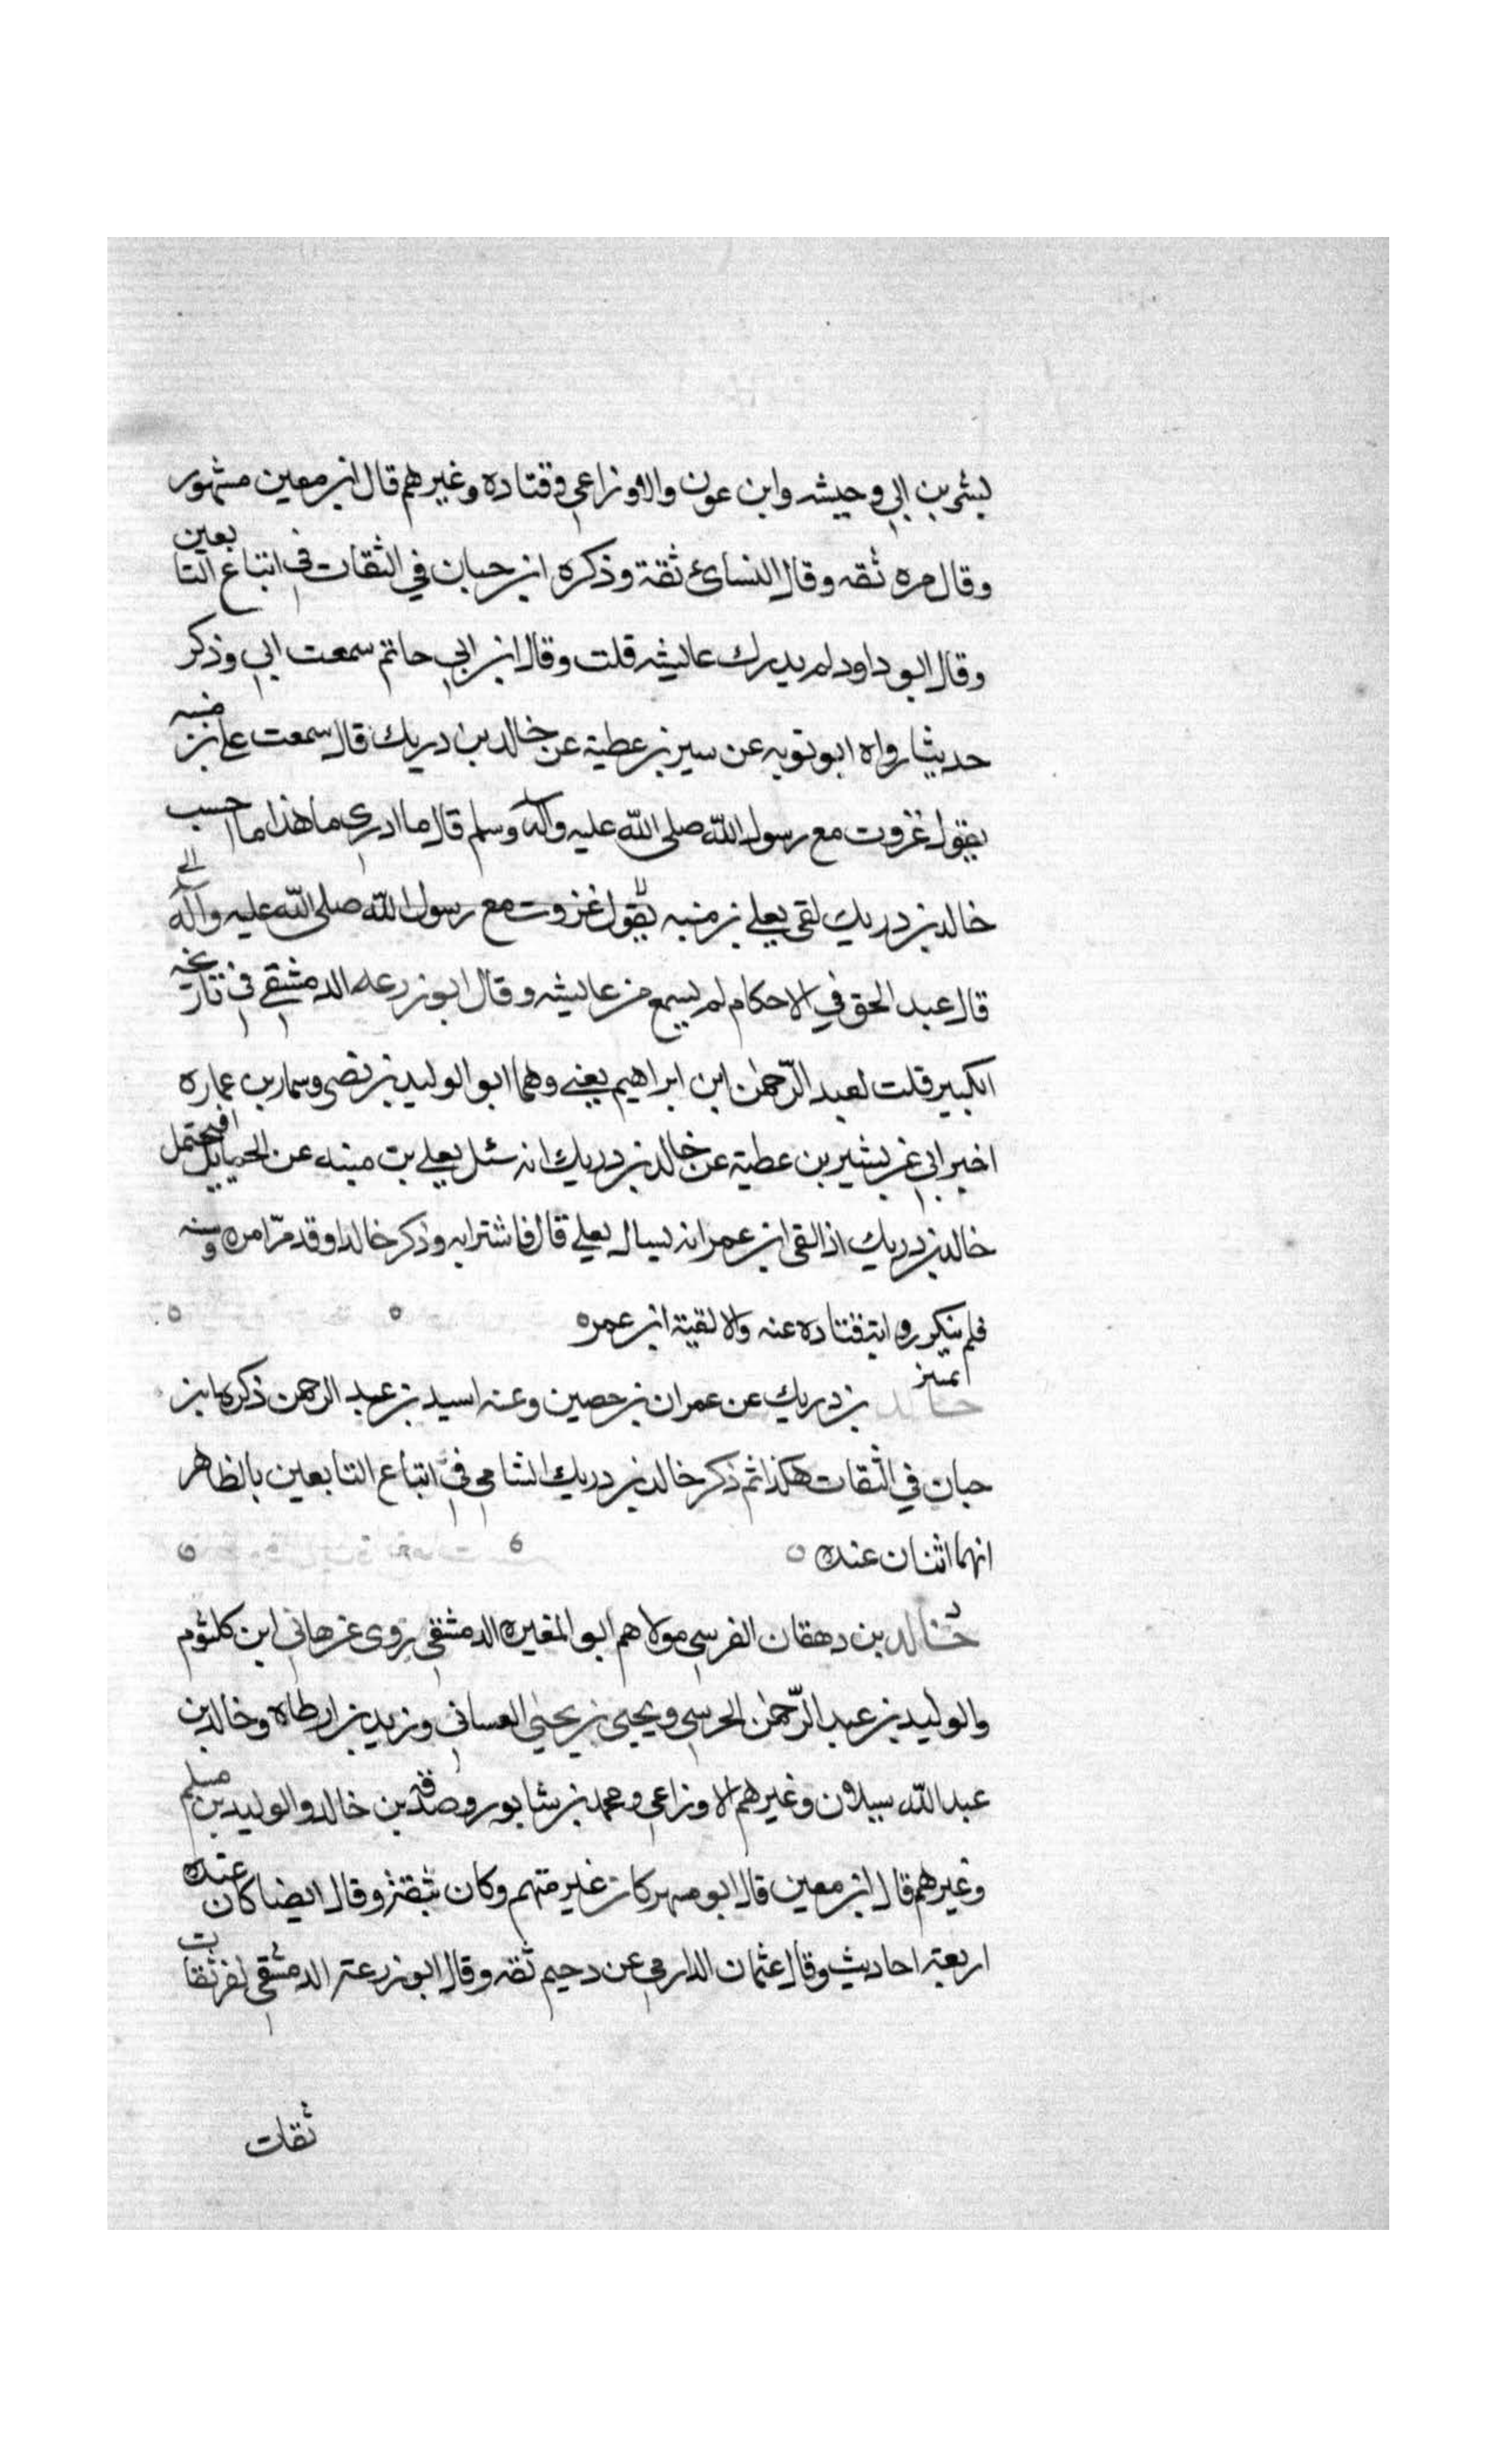 بشر بن ابي وحيشه وابن عون والاوزاعي وقتاده وغيرهم قال ابن معين مشهور
وقال مره ثقه وقال النسائ ثقة وذكره ابن حبان في الثقات في اتباع التابعين
وقال ابو داود لم يدرك عايشه قلت وقال ابن ابي حاتم سمعت ابي وذكر
حديثا رواه ابو توبه عن سير بن عطية عن خالد بن دريك قال سمعت على بن منبه
يقول غزوت مع رسول الله صلى الله عليه وآله وسلم قال ما ادري ما هذا ما احسب
خالد بن دريك لقى يعلے بن منبه يقول غزوت مع رسول الله صلى الله عليه وآله الے
قال عبد الحق في الاحكام لم يسمع من عايشه وقال ابو زرعه الدمشقے فى تاريخه
الكبير قلت لعبد الرّحمٰن ابن ابراهيم يعنے وهما ابو الوليد بن نصى وسمار بن عماره
اخبرابى عن بشير بن عطية عن خالد بن دريك انه سئل يعلے بن منبه عن الحمايل افيحتمل
خالد بن دريك اذا لقى ابن عمر انه يسال يعلے قال فاشترابه وذكر خالدا وقد مرّ امره وسنه
فلم ينكر رواية قتاده عنه ولا لقية ابن عمره
تمييز
خالد بن دريك عن عمران بن حصين وعنه اسيد بن عبد الرحمن ذكرهابن
حبان في الثقات هكذا ثم ذكر خالد بن دريك الشامي فى اتباع التابعين بالظاهر
انهما اثنان عنده
خالد بن دهقان القرسي مولاهم ابو المغيره الدمشقي روى عن هاني ابن كلثوم
والوليد بن عبد الرّحمٰن الحرسي ويحيى بن يحيٰى العسانى وزيد بن ارطاه وخالد بن
عبد الله سبلان وغيرهم الاوزاعي ومحمد بن شابور وصدقة بن خالد والوليد بن مسلم
وغيرهم قال ابن معين قال ابو مسهر كان غير متهم وكان ثقة وقال ايضا كان عنده
اربعة احاديث وقال عثمان الدارمي عن دحيم ثقه وقال ابو زرعة الدمشقي نفر ثقات
ثقات